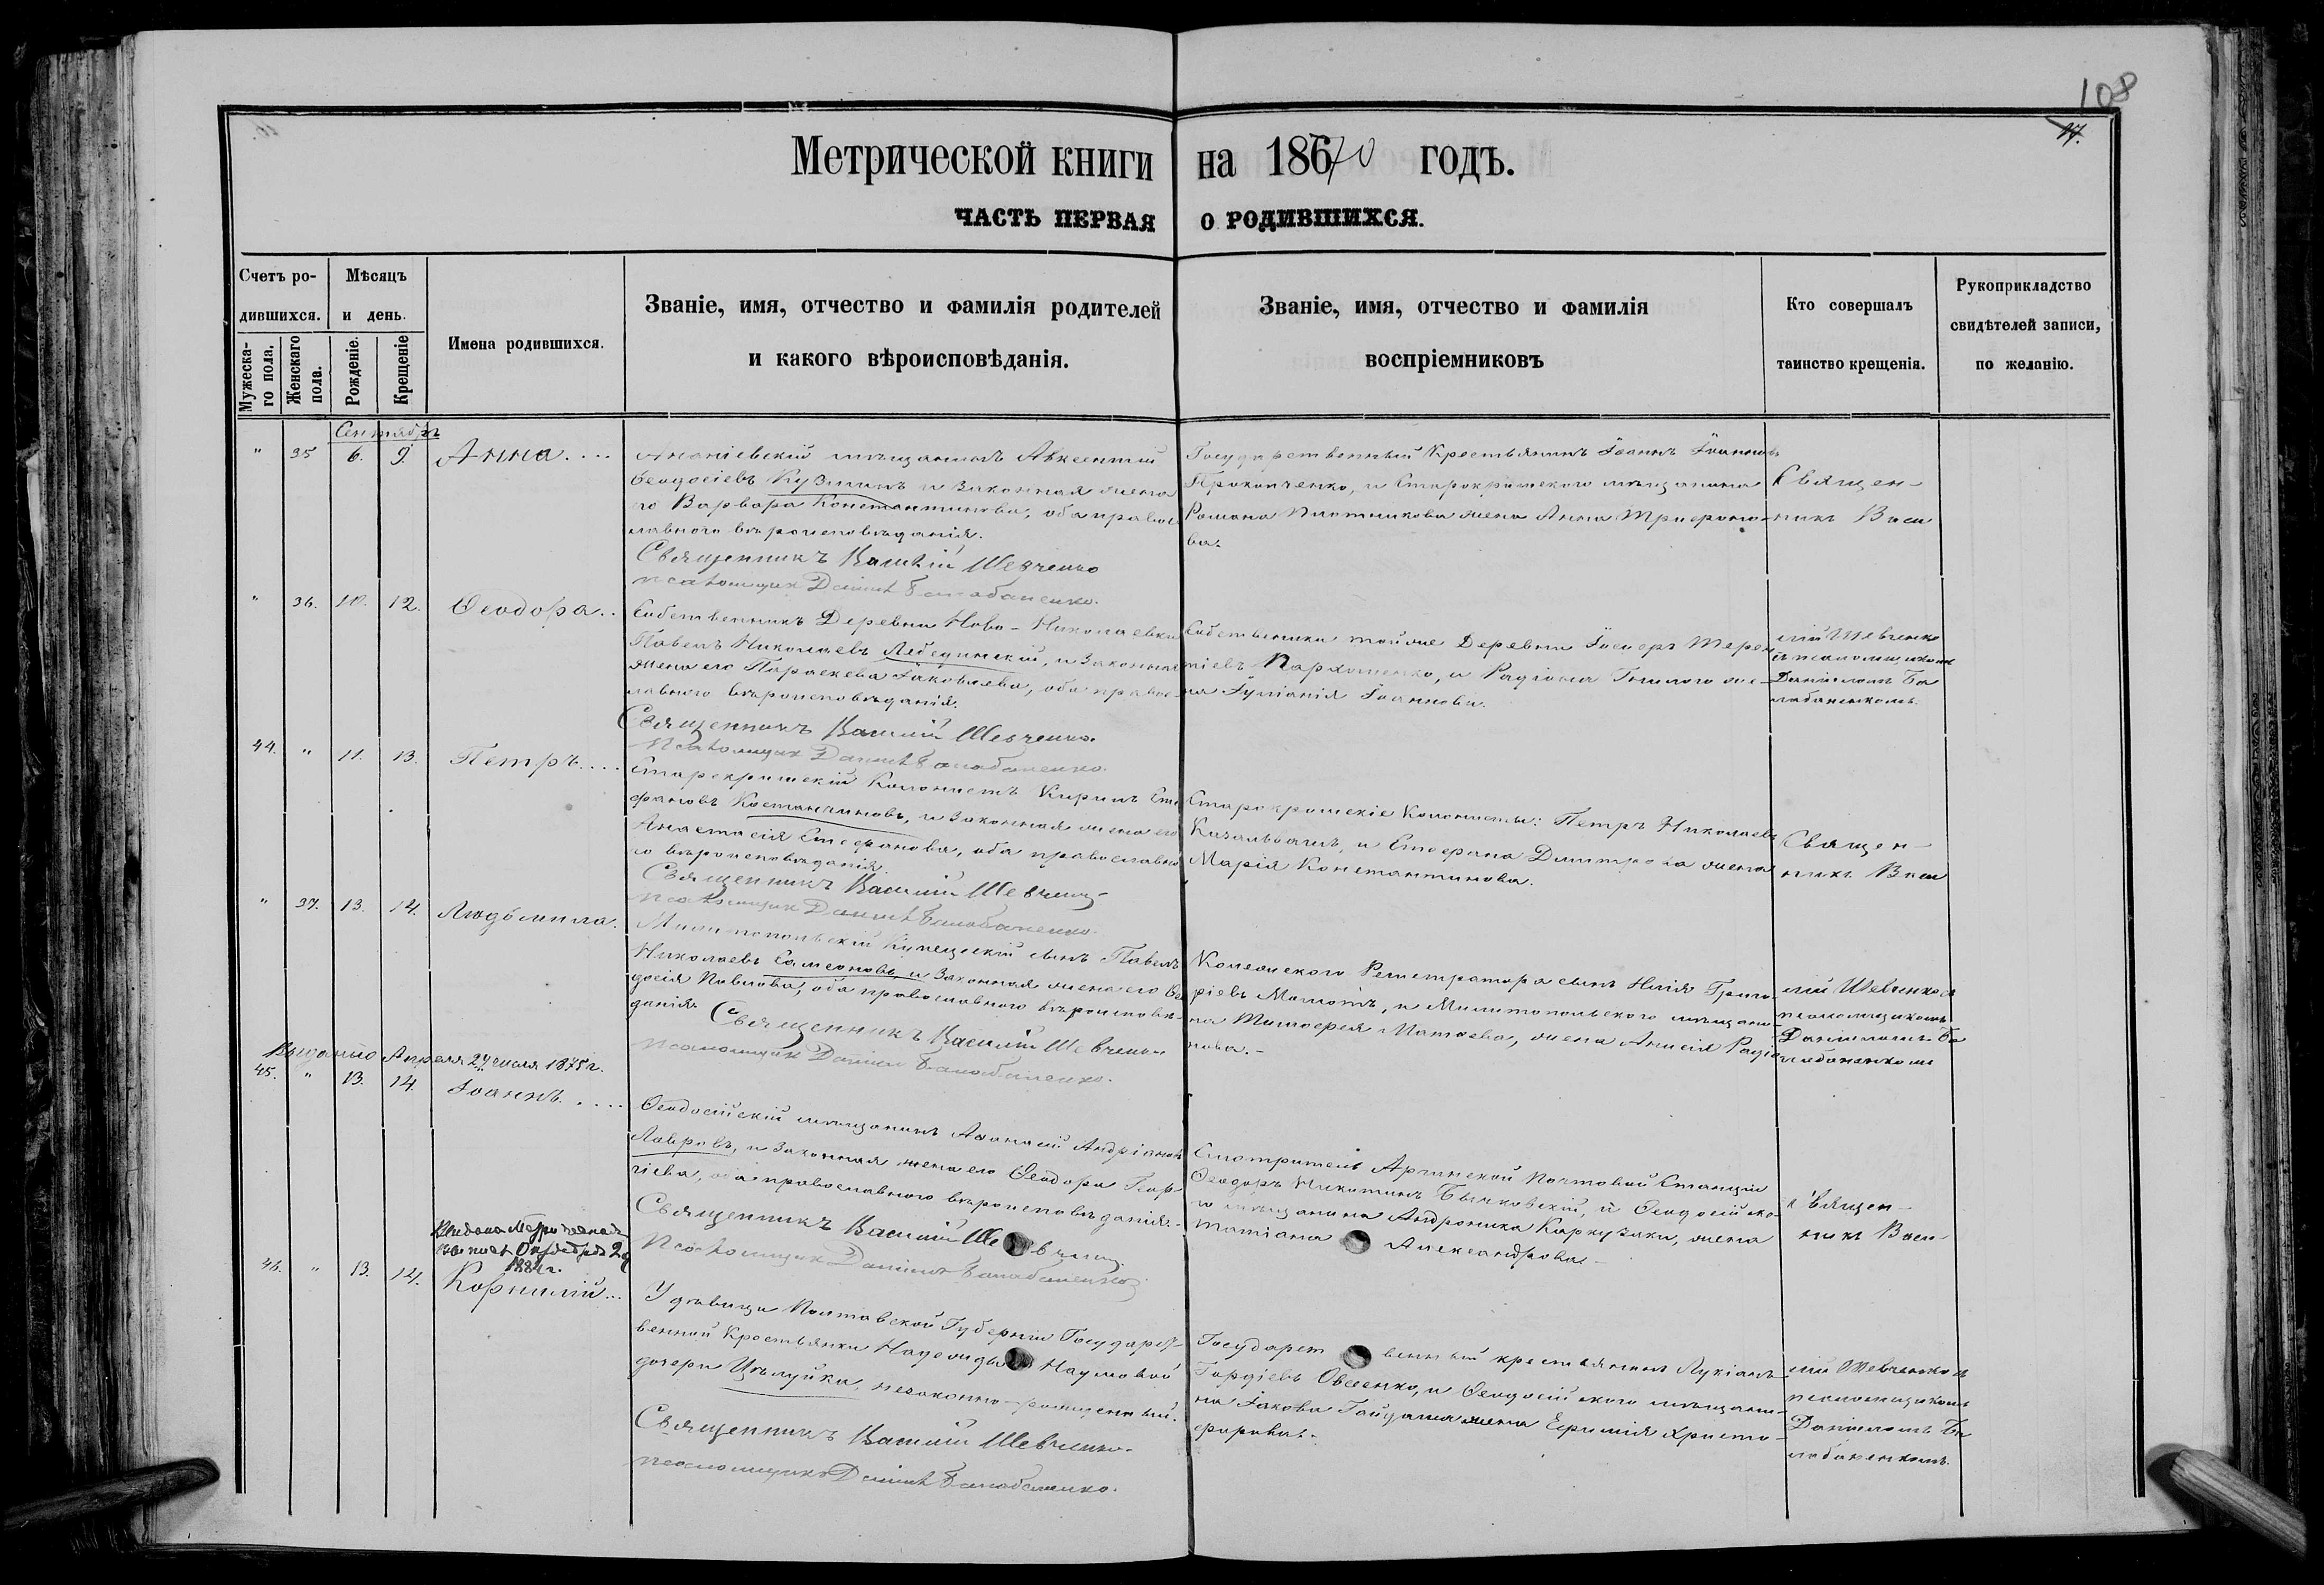 108
17.
Метрической книги на 18670 годъ.
ЧАСТЬ ПЕРВАЯ О РОДИВШИХСЯ.
Счетъ родившихся.
Мужескаго пола.
Женскаго пола.
Мѣсяцъ и день.
Рожденіе.
Крещеніе
Имена родившихся.
Званіе, имя, отчество и фамилія родителей
и какого вѣроисповѣданія.
Званіе, имя, отчество и фамилія
воспріемниковъ
Кто совершалъ
таинство крещенія.
Рукоприкладство
свидѣтелей записи,
по желанію.
Сентябрь
" 35 6. 9. Анна....
Ананіевскій мѣщанинъ Авксентій
Ѳеодосіевъ Кузминъ и законная жена
го Варвара Константинова, оба правос
лавного вѣроисповѣданія.
Священникъ Василій Шевченко
псаломщик Даниил Балабаненко.
Государственный Крестьянинъ Іоаннъ Іоанновъ
Прокопченко, и Старокрымского мѣщанина
Романа Плотникова жена Анна Трифоно-
ва.
Священ-
никъ Васи
" 36. 10. 12. Ѳеодора..
Собственникъ Деревни Ново-Николаевки
Павелъ Николаевъ Лебединскій, и законная
жена его Параскева Іаковлева, оба правос-
лавного вѣроисповѣданія.
Священникъ Василій Шевченко.
псаломщик Даниил Балабаненко.
Собственники тойже Деревни Іосифъ Терен
тіевъ Пархоменко, и Радіона Гнилого же-
на Іуліанія Іоаннова.
лій Шевченко
съ псаломщикомъ
Даніиломъ Ба
лабаненкомъ.
44. " 11. 13. Петръ....
Старокрымскій Колонистъ Кирилъ Сте
фановъ Костанчиновъ, и законная жена его
Анастасія Стефанова, оба православно
го вѣроисповѣданія.
Священникъ Василій Шевченко
псаломщик Даниил Балабаненко.
Старокрымскіе Колонисты: Петръ Николаевъ
и Стефана Димитрова жена
Марія Константинова.
Священ-
никъ Васи
" 37. 13. 14. Людьмила.
Мелитопольскій Купеческій сынъ Павелъ
Николаевъ Самсоновъ, и законная жена его Ѳео
досія Павлова, оба православного вѣроисповѣ-
данія.
Священникъ Василій Шевченко
псаломщик Даниил Балабаненко.
Колежского Регистратора сынъ Илія Григо-
ріевъ и Мелитопольского мѣщани-
на Тимофея Матвева, жена Анисія Радіо
нова.-
лій Шевченко съ
псаломщикомъ
Даніиломъ Ба
лабаненкомъ
Апреля 24 1875 г.
45. " 13. 14. Іоаннъ....
Ѳеодосійскій мѣщанинъ Аѳанасій Андріановъ
Лавровъ, и законная жена его Ѳеодора Геор-
гіева, оба православного вѣроисповѣданія.-
Священникъ Василій Шевченко
Псаломщик Даниил Балабаненко.
Смотритель Аргинской Почтовой Станціи
Ѳеодоръ Никитинъ Бычковскій, и Ѳеодосійско-
го мѣщанина Андроника жена
Татіана Александрова.-
Священ-
никъ Васи-
Октября 29
1881 г.
46. " 13. 14. Корнилій...
У дѣвицы Полтавской Губерніи Государст-
венной Крестьянки Надежды Наумовой
дочери Цѣлуйка, незаконно-рожденный.
Священникъ Василій Шевченко.
псаломщикъ Даниил Балабаненко.
Государственный крестьянинъ Лукіанъ
Гордіевъ Овсеенко, и Ѳеодосійского мѣщани-
на Іакова жена Ефимія Христо-
форовна.
лій Шевченко съ
псаломщикомъ
Даніиломъ Ба
лабаненкомъ.